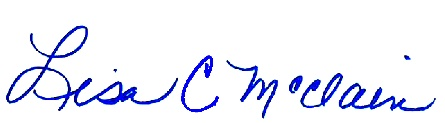 Lisa C McClain